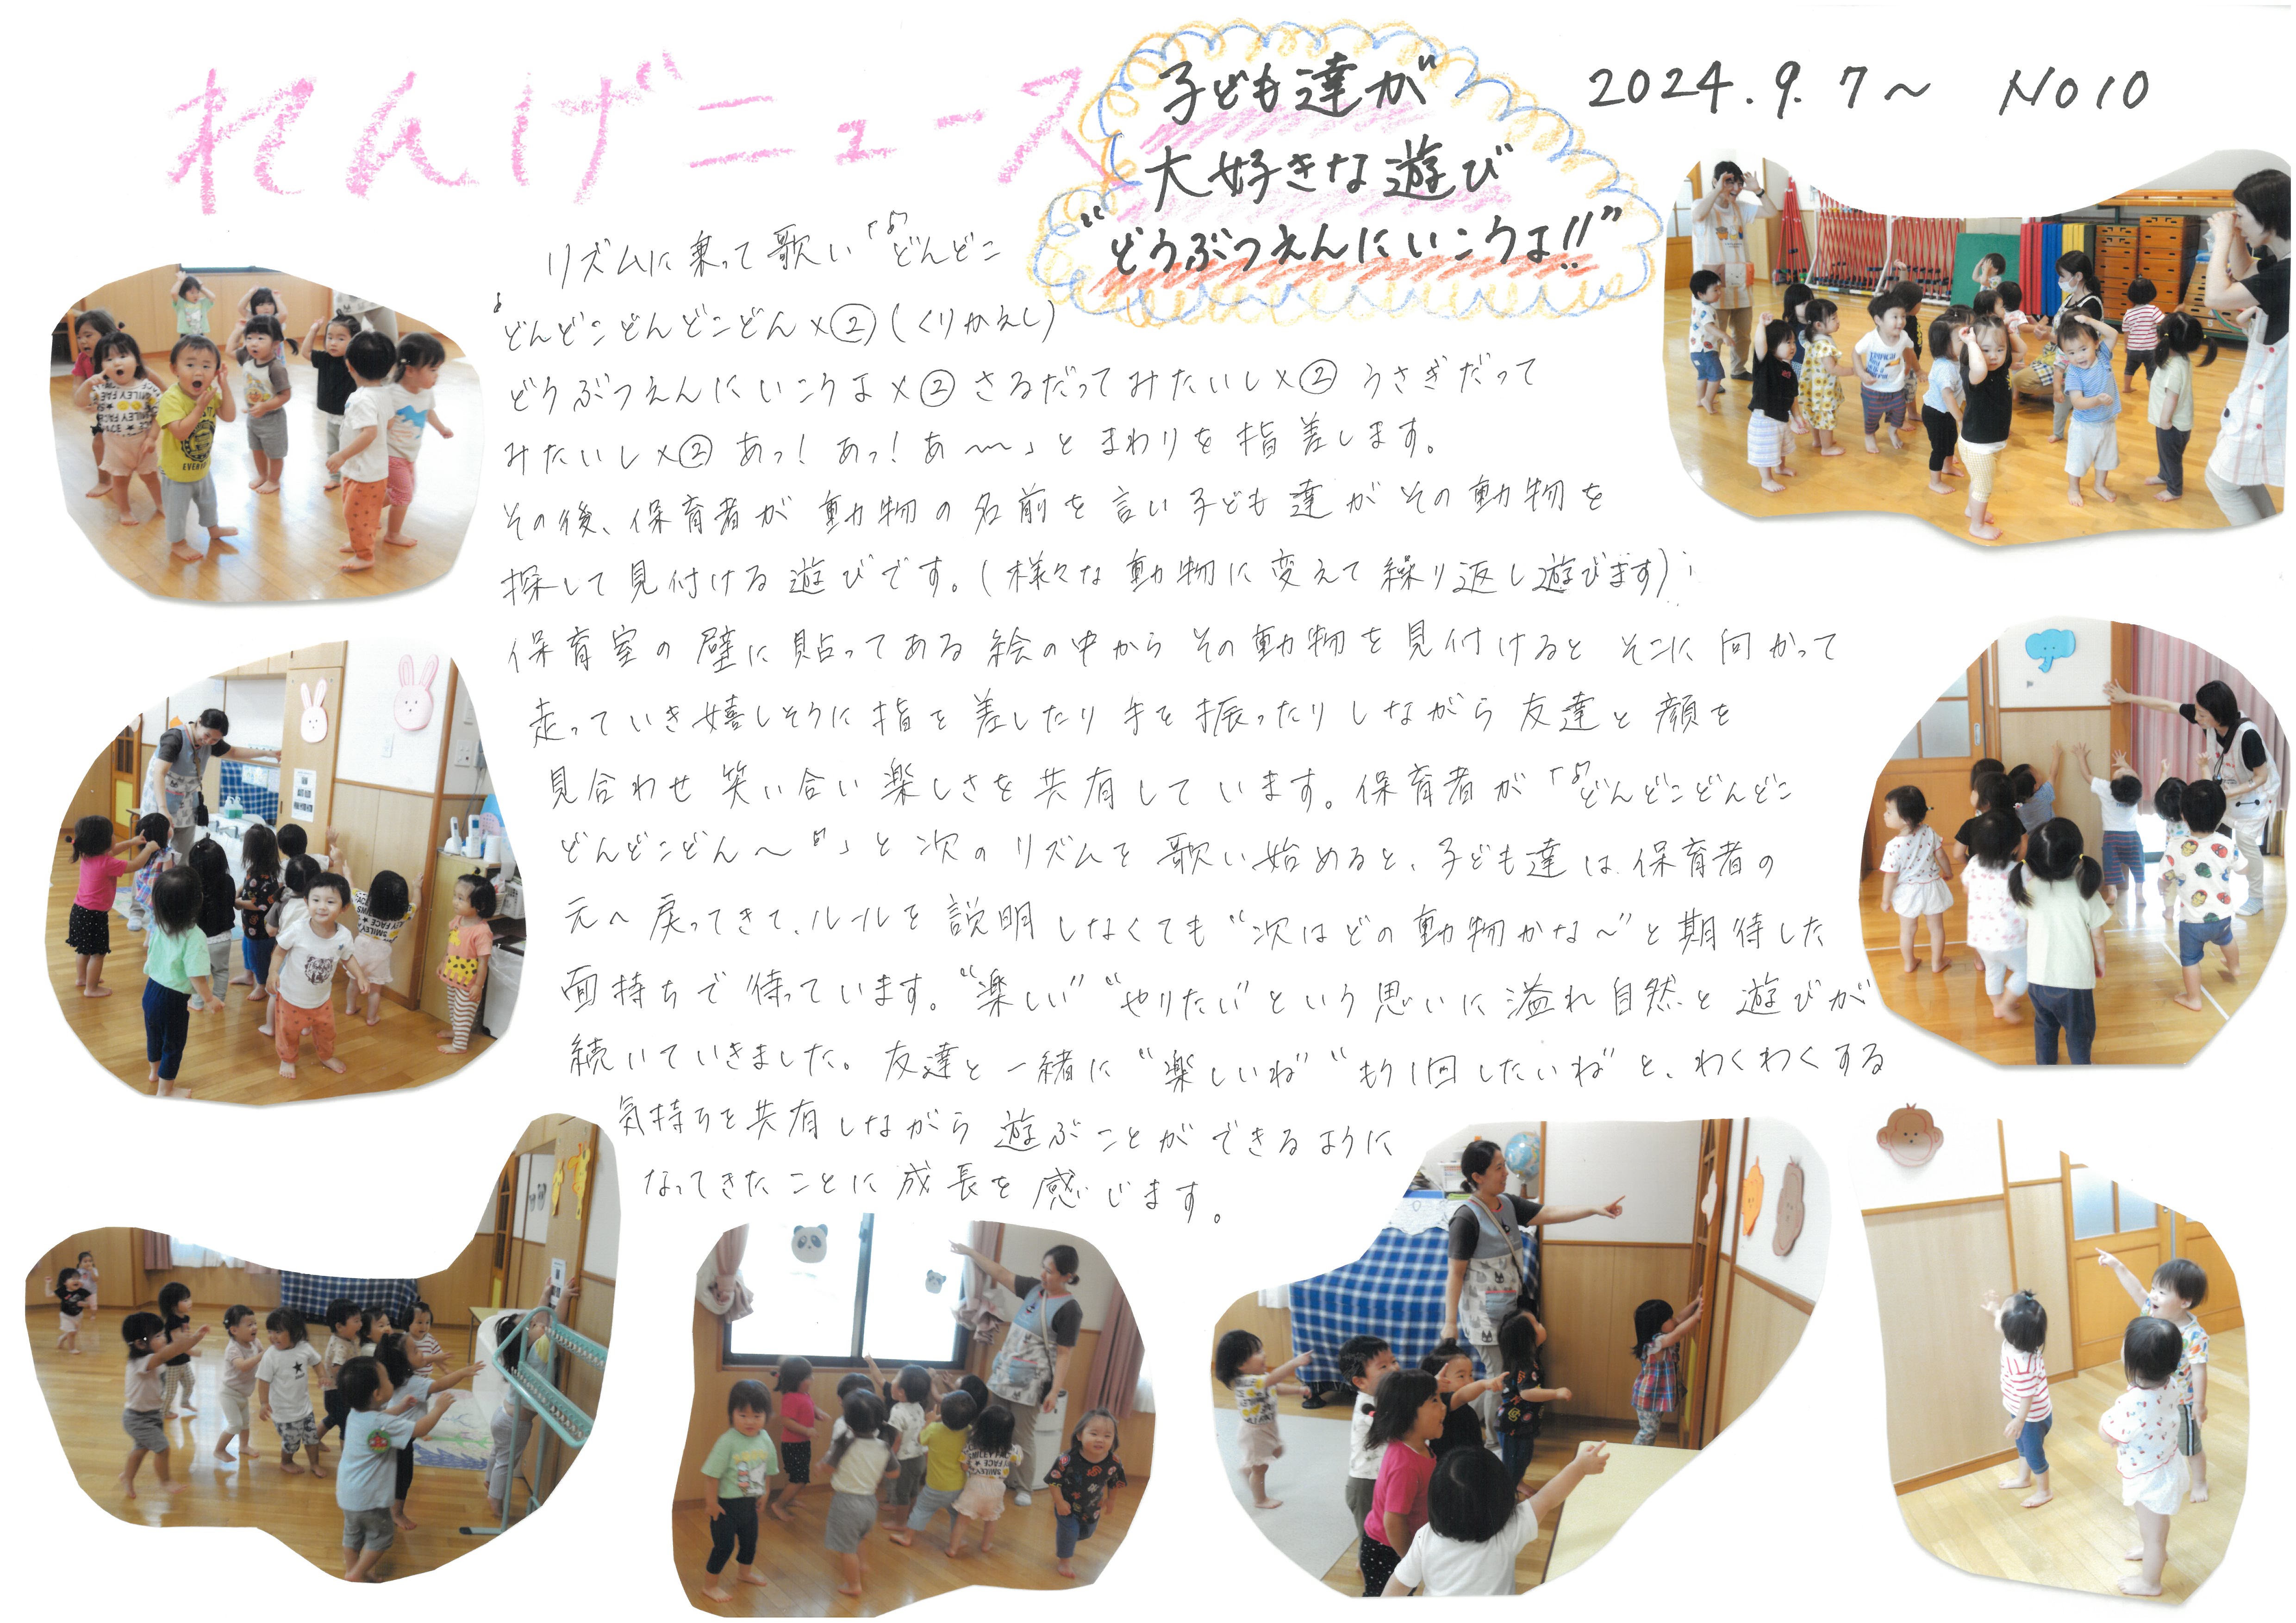 れんげニュース
子ども達が
大好きな遊び
“どうぶつえんにいこうよ!!”
2024.9.7～ No10
リズムに乗って歌い「♪どんどこ
どんどこどんどこどん×②)(くりかえし)
どうぶつえんにいこうよ×② さるだってみたいし×② うさぎだって
みたいし×② あっ!あっ!あ～」とまわりを指差します。
その後、保育者が動物の名前を言い子ども達がその動物を
探して見付ける遊びです。(様々な動物に変えて繰り返し遊びます)
保育室の壁に貼ってある絵の中からその動物を見付けるとそこに向かって
走っていき嬉しそうに指を差したり手を振ったりしながら友達と顔を
見合わせ笑い合い楽しさを共有しています。保育者が「♪どんどこどんどこ
どんどこどん～♪」と次のリズムを歌い始めると、子ども達は保育者の
元へ戻ってきて、ルールを説明しなくても“次はどの動物かな～”と期待した
面持ちで待っています。“楽しい”“やりたい”という思いに溢れ自然と遊びが
続いていきました。友達と一緒に“楽しいね”“もう1回したいね”と、わくわくする
気持ちを共有しながら遊ぶことができるように
なってきたことに成長を感じます。